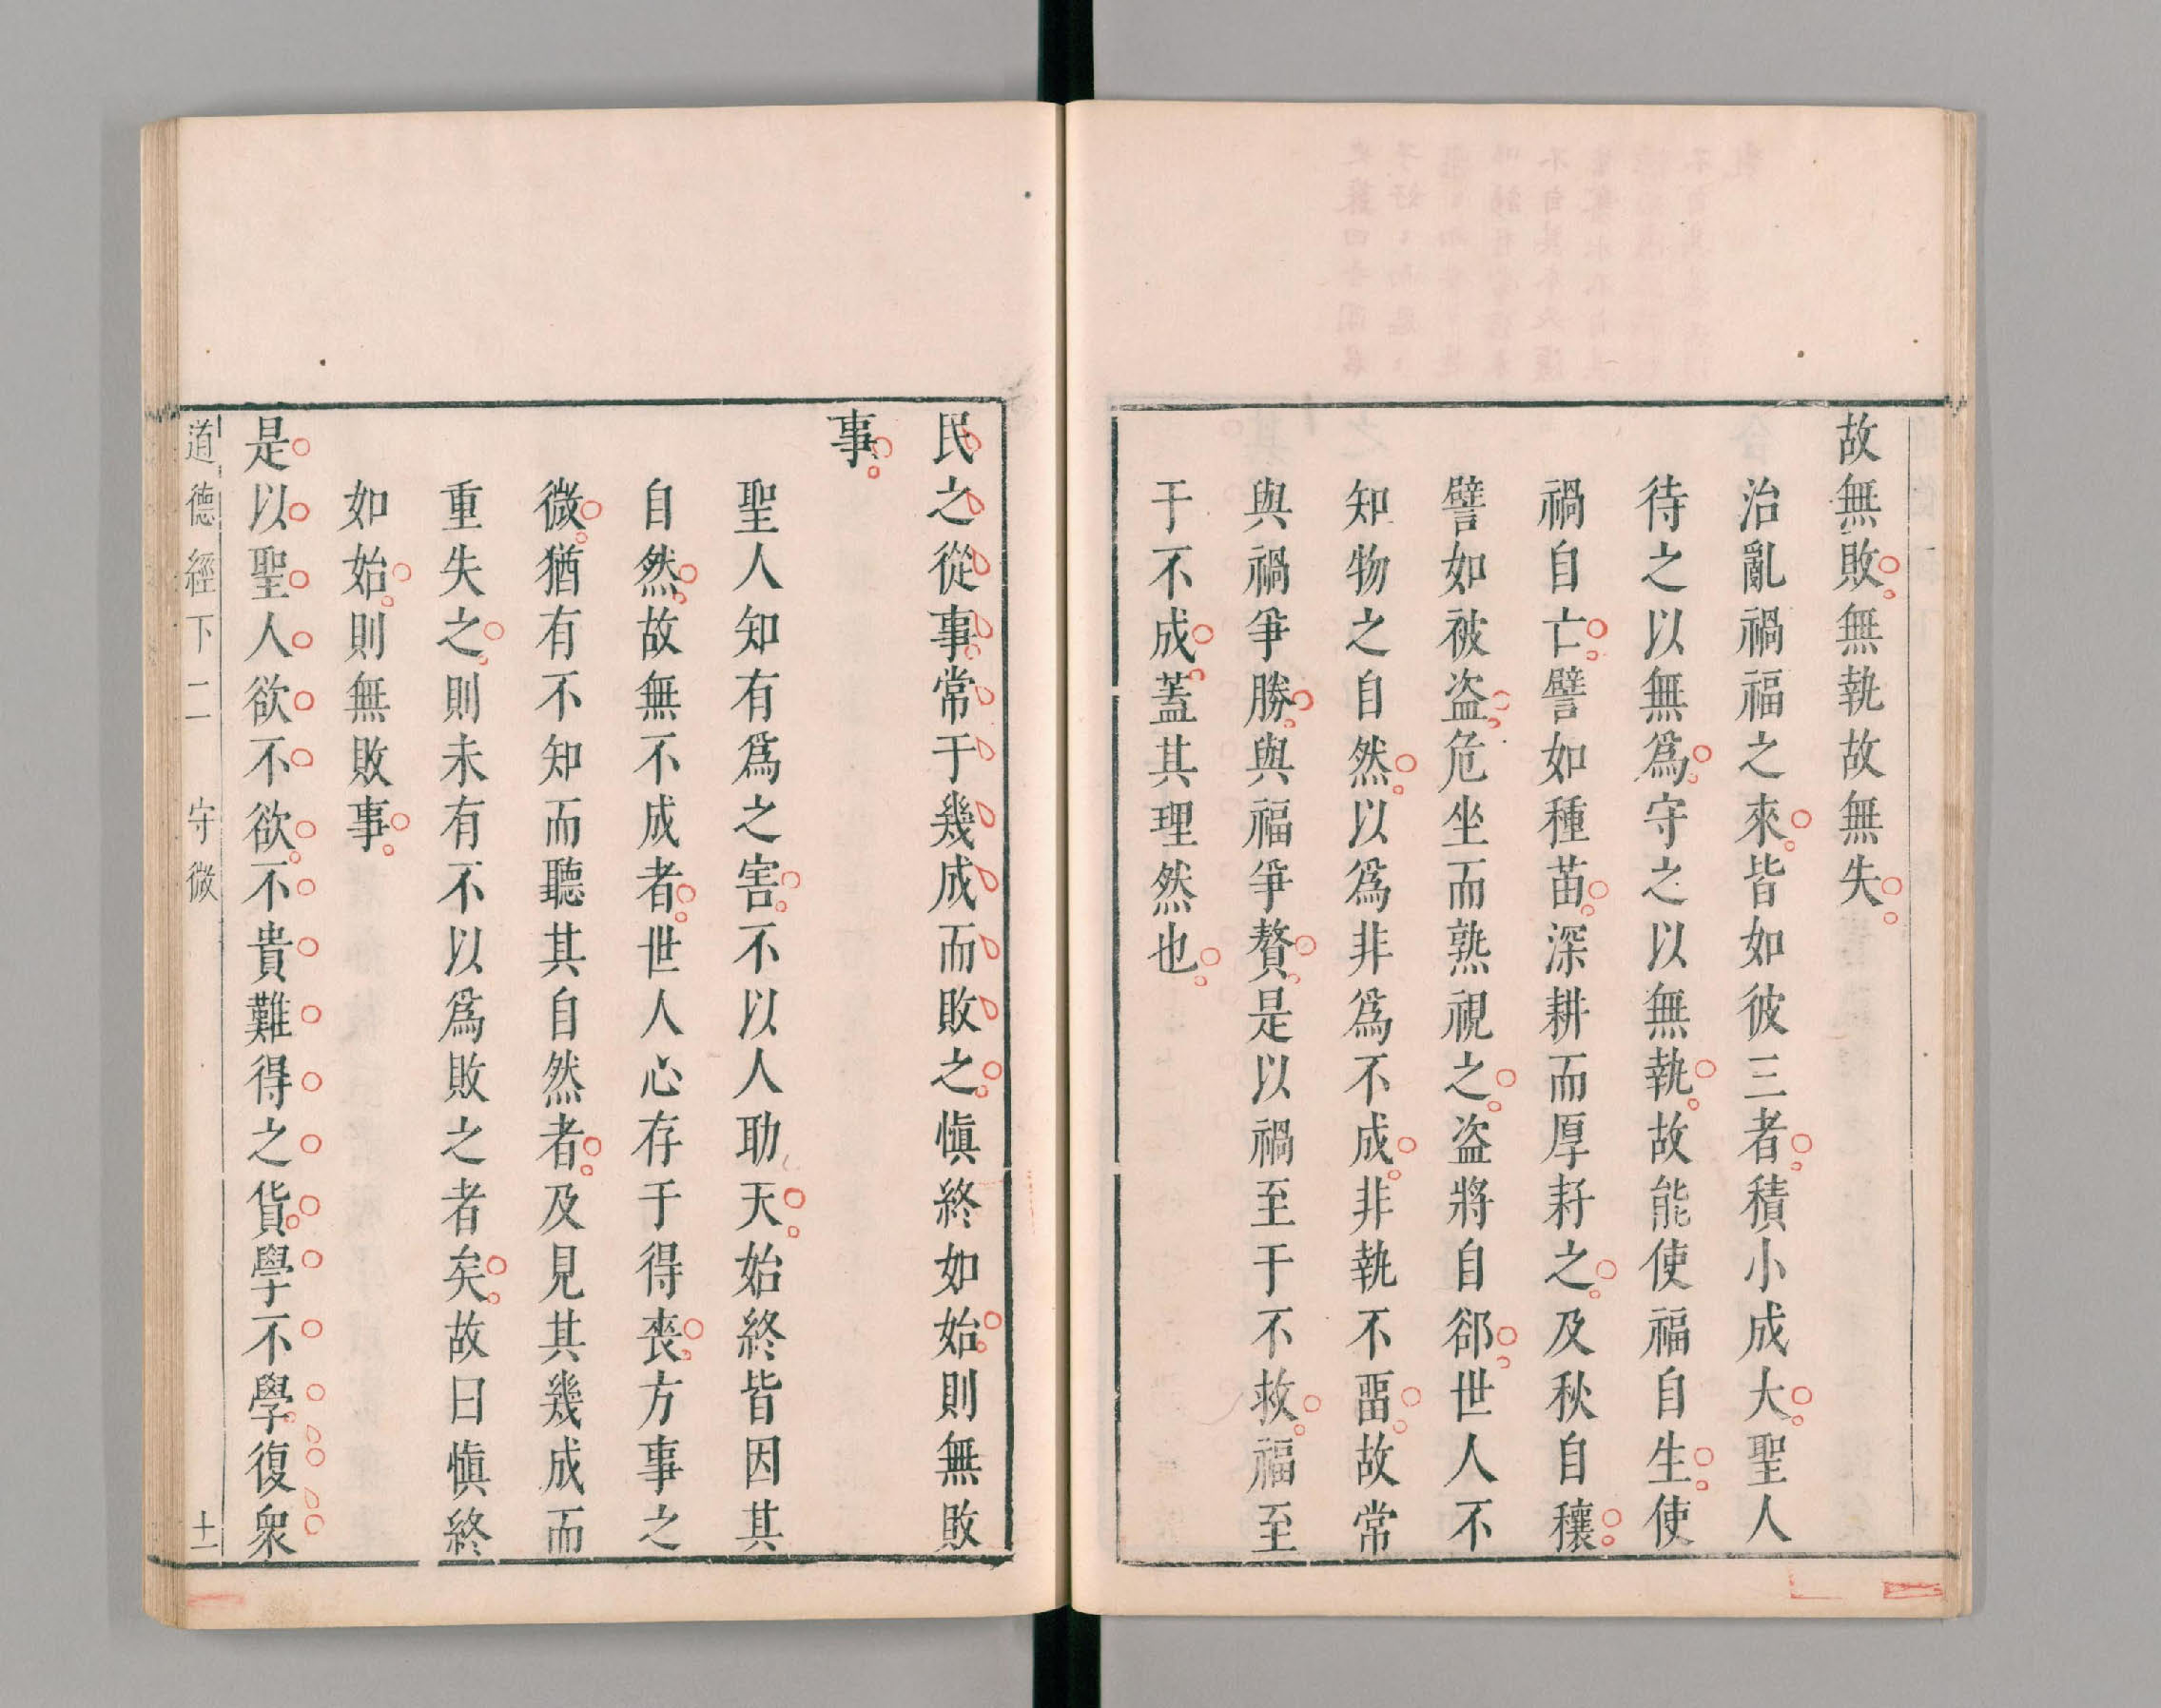 故無敗無執故無失
治亂禍福之來皆如彼三者積小成大聖人
待之以無爲守之以無執故能使福自生使
禍自亡譬如種苗深耕而厚耔之及秋自穰
譬如被盜危坐而熟視之盜將自郤世人不
知物之自然以爲非爲不成非執不畱故常
與禍爭勝與福爭贅是以禍至于不救福至
于不成蓋其理然也
民之從事常于幾成而敗之慎終如始則無敗
事
聖人知有爲之害不以人助天始終皆因其
自然故無不成者世人心存于得喪方事之
微猶有不知而聽其自然者及見其幾成而
重失之則未有不以爲敗之者矣故曰慎終
如始則無敗事
是以聖人欲不欲不貴難得之貨學不學復衆
道德經下二 守微 十一